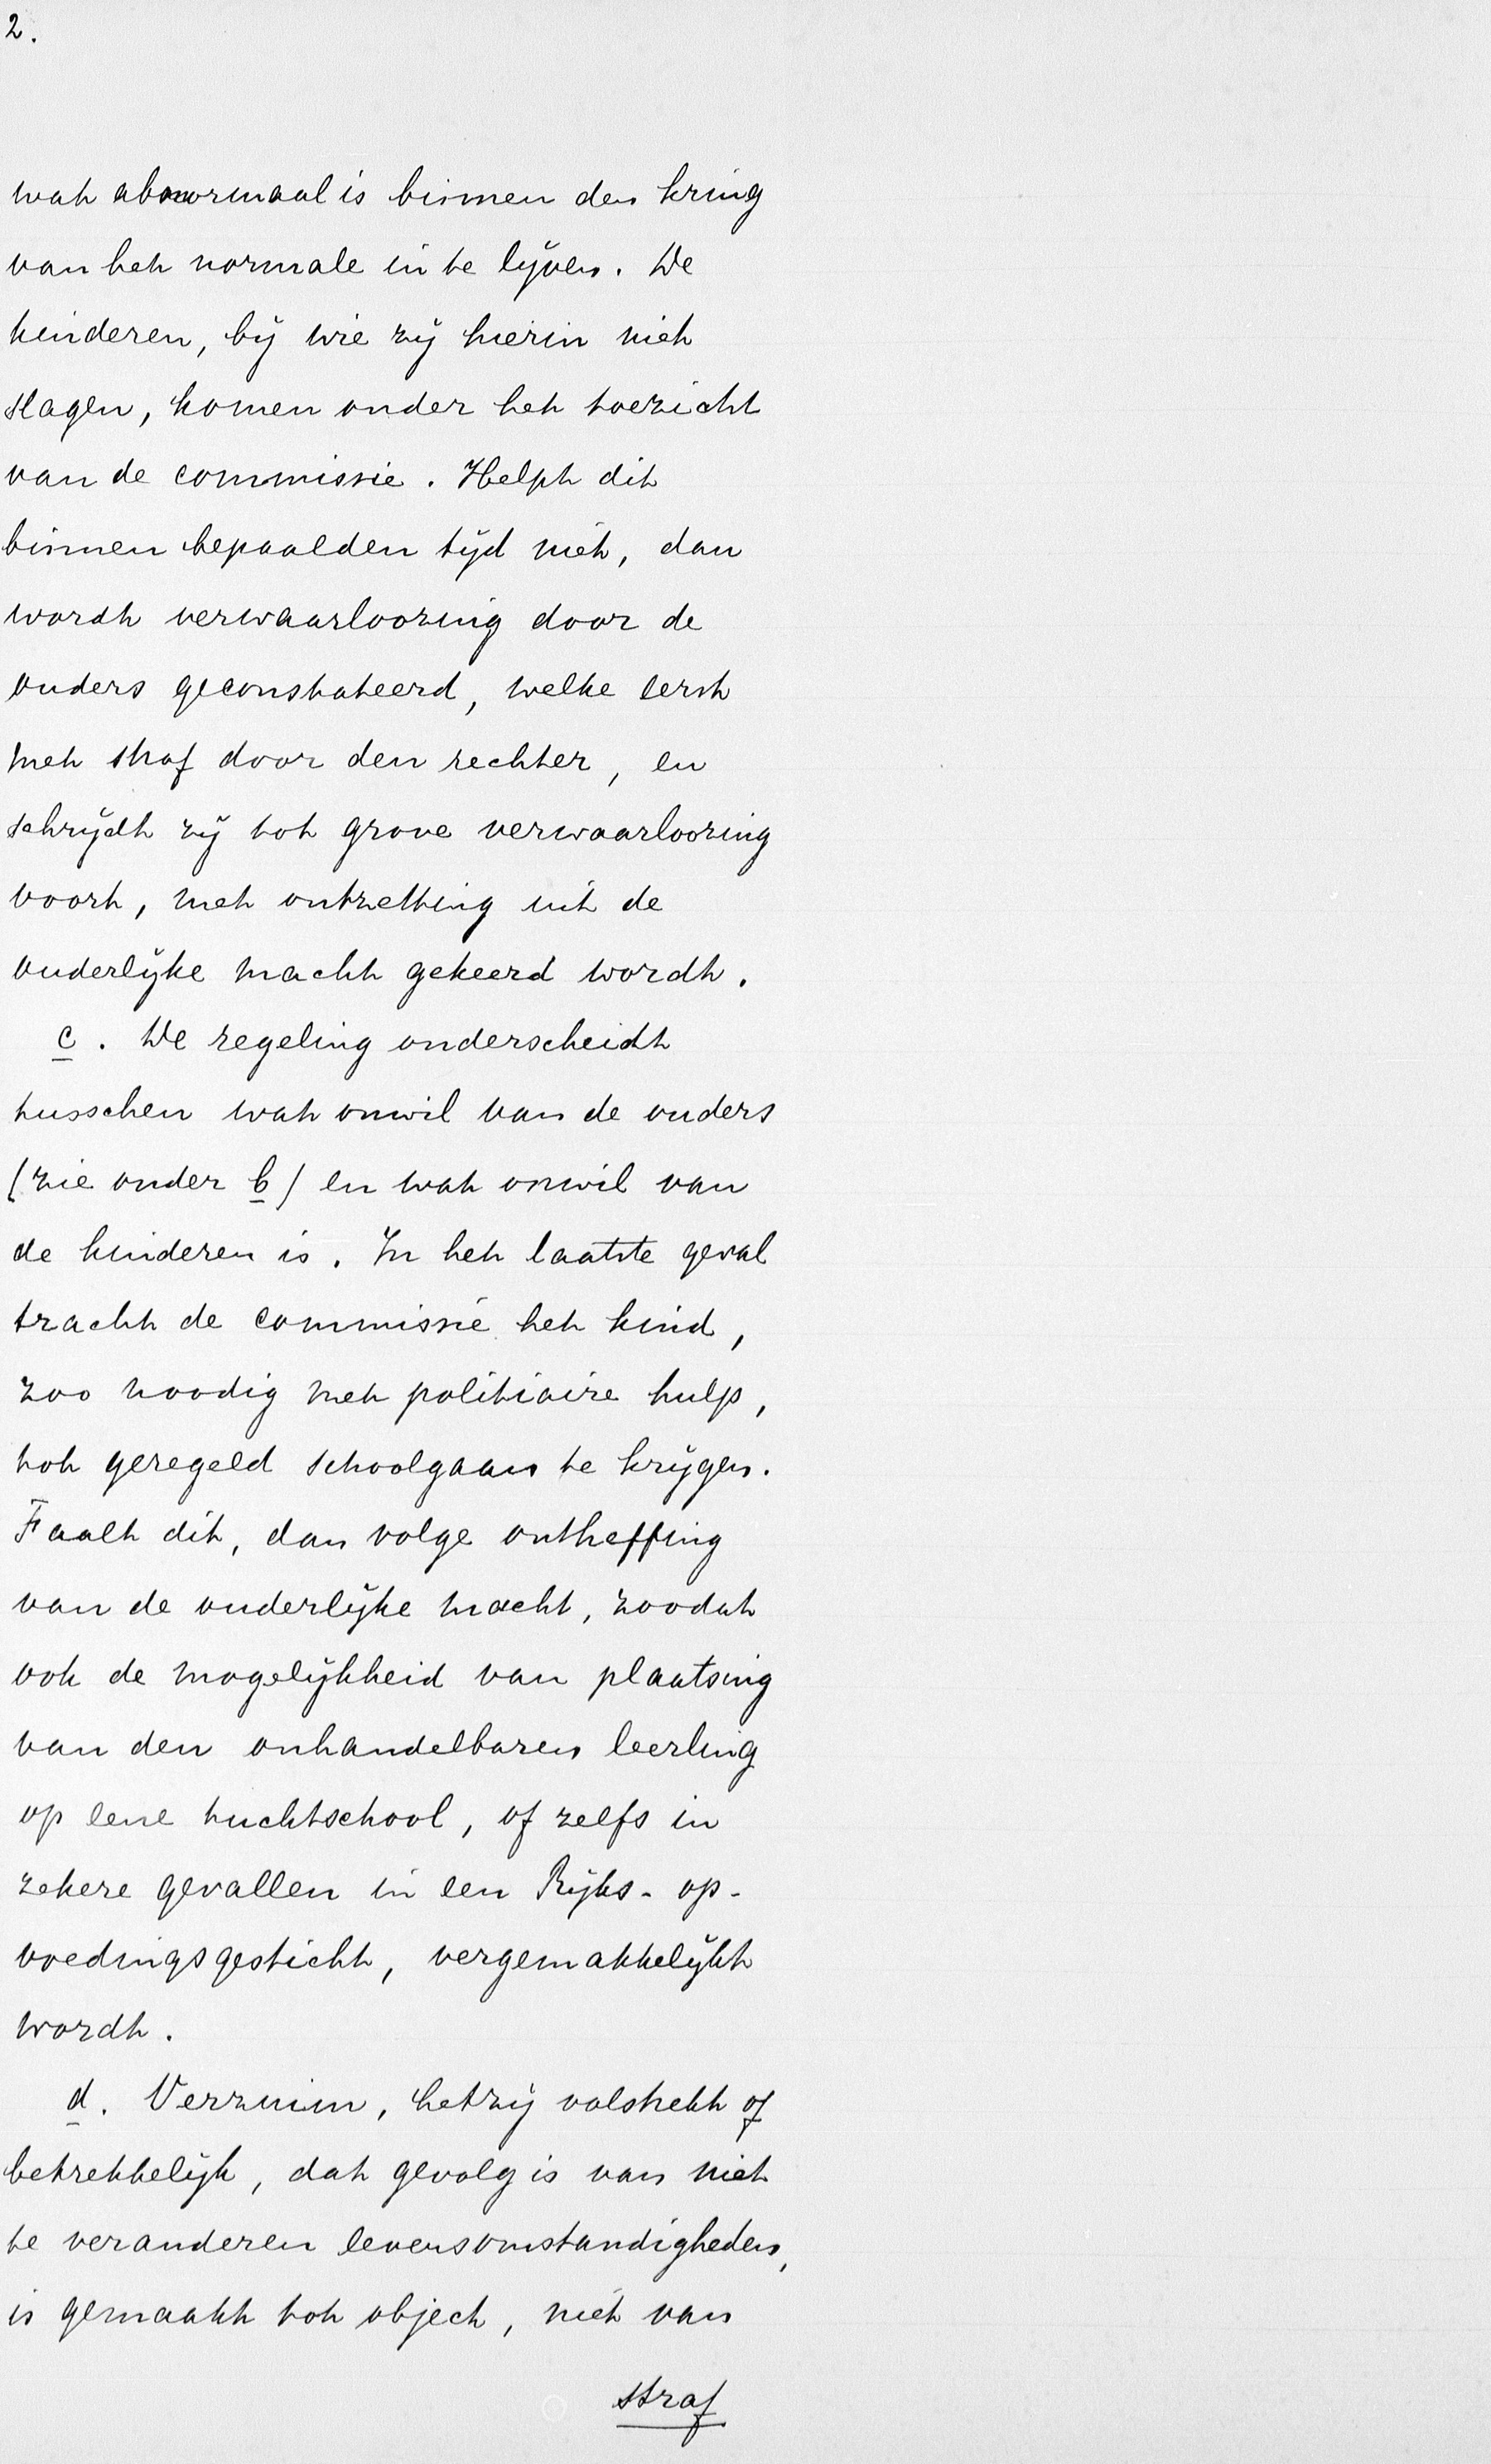 2.
wat abnormaal is binnen den kring
van het normale in te lijven. De
kinderen, bij wie zij hierin niet
slagen, komen onder het toezicht
van de commissie. Helpt dit
binnen bepaalden tijd niet, dan
wordt verwaarloozing door de
ouders geconstateerd, welke eerst
met straf door den rechter, en
schrijdt zij tot grove verwaarloozing
voort, met ontzetting uit de
ouderlijke macht gekeerd wordt.
c. De regeling onderscheidt
tusschen wat onwil van de ouders
(zie onder b) en wat onwil van
de kinderen is. In het laatste geval
tracht de commissie het kind,
zoo noodig met politiaire hulp,
tot geregeld schoolgaan te krijgen.
Faalt dit, dan volge ontheffing
van de ouderlijke macht, zoodat
ook de mogelijkheid van plaatsing
van den onhandelbaren leerling
op eene tuchtschool, of zelfs in
zekere gevallen in een Rijks-op-
voedingsgesticht, vergemakkelijkt
wordt.
d. Verzuim, hetzij volstrekt of
betrekkelijk, dat gevolg is van niet
te veranderen levensomstandigheden,
is gemaakt tot object, niet van
straf